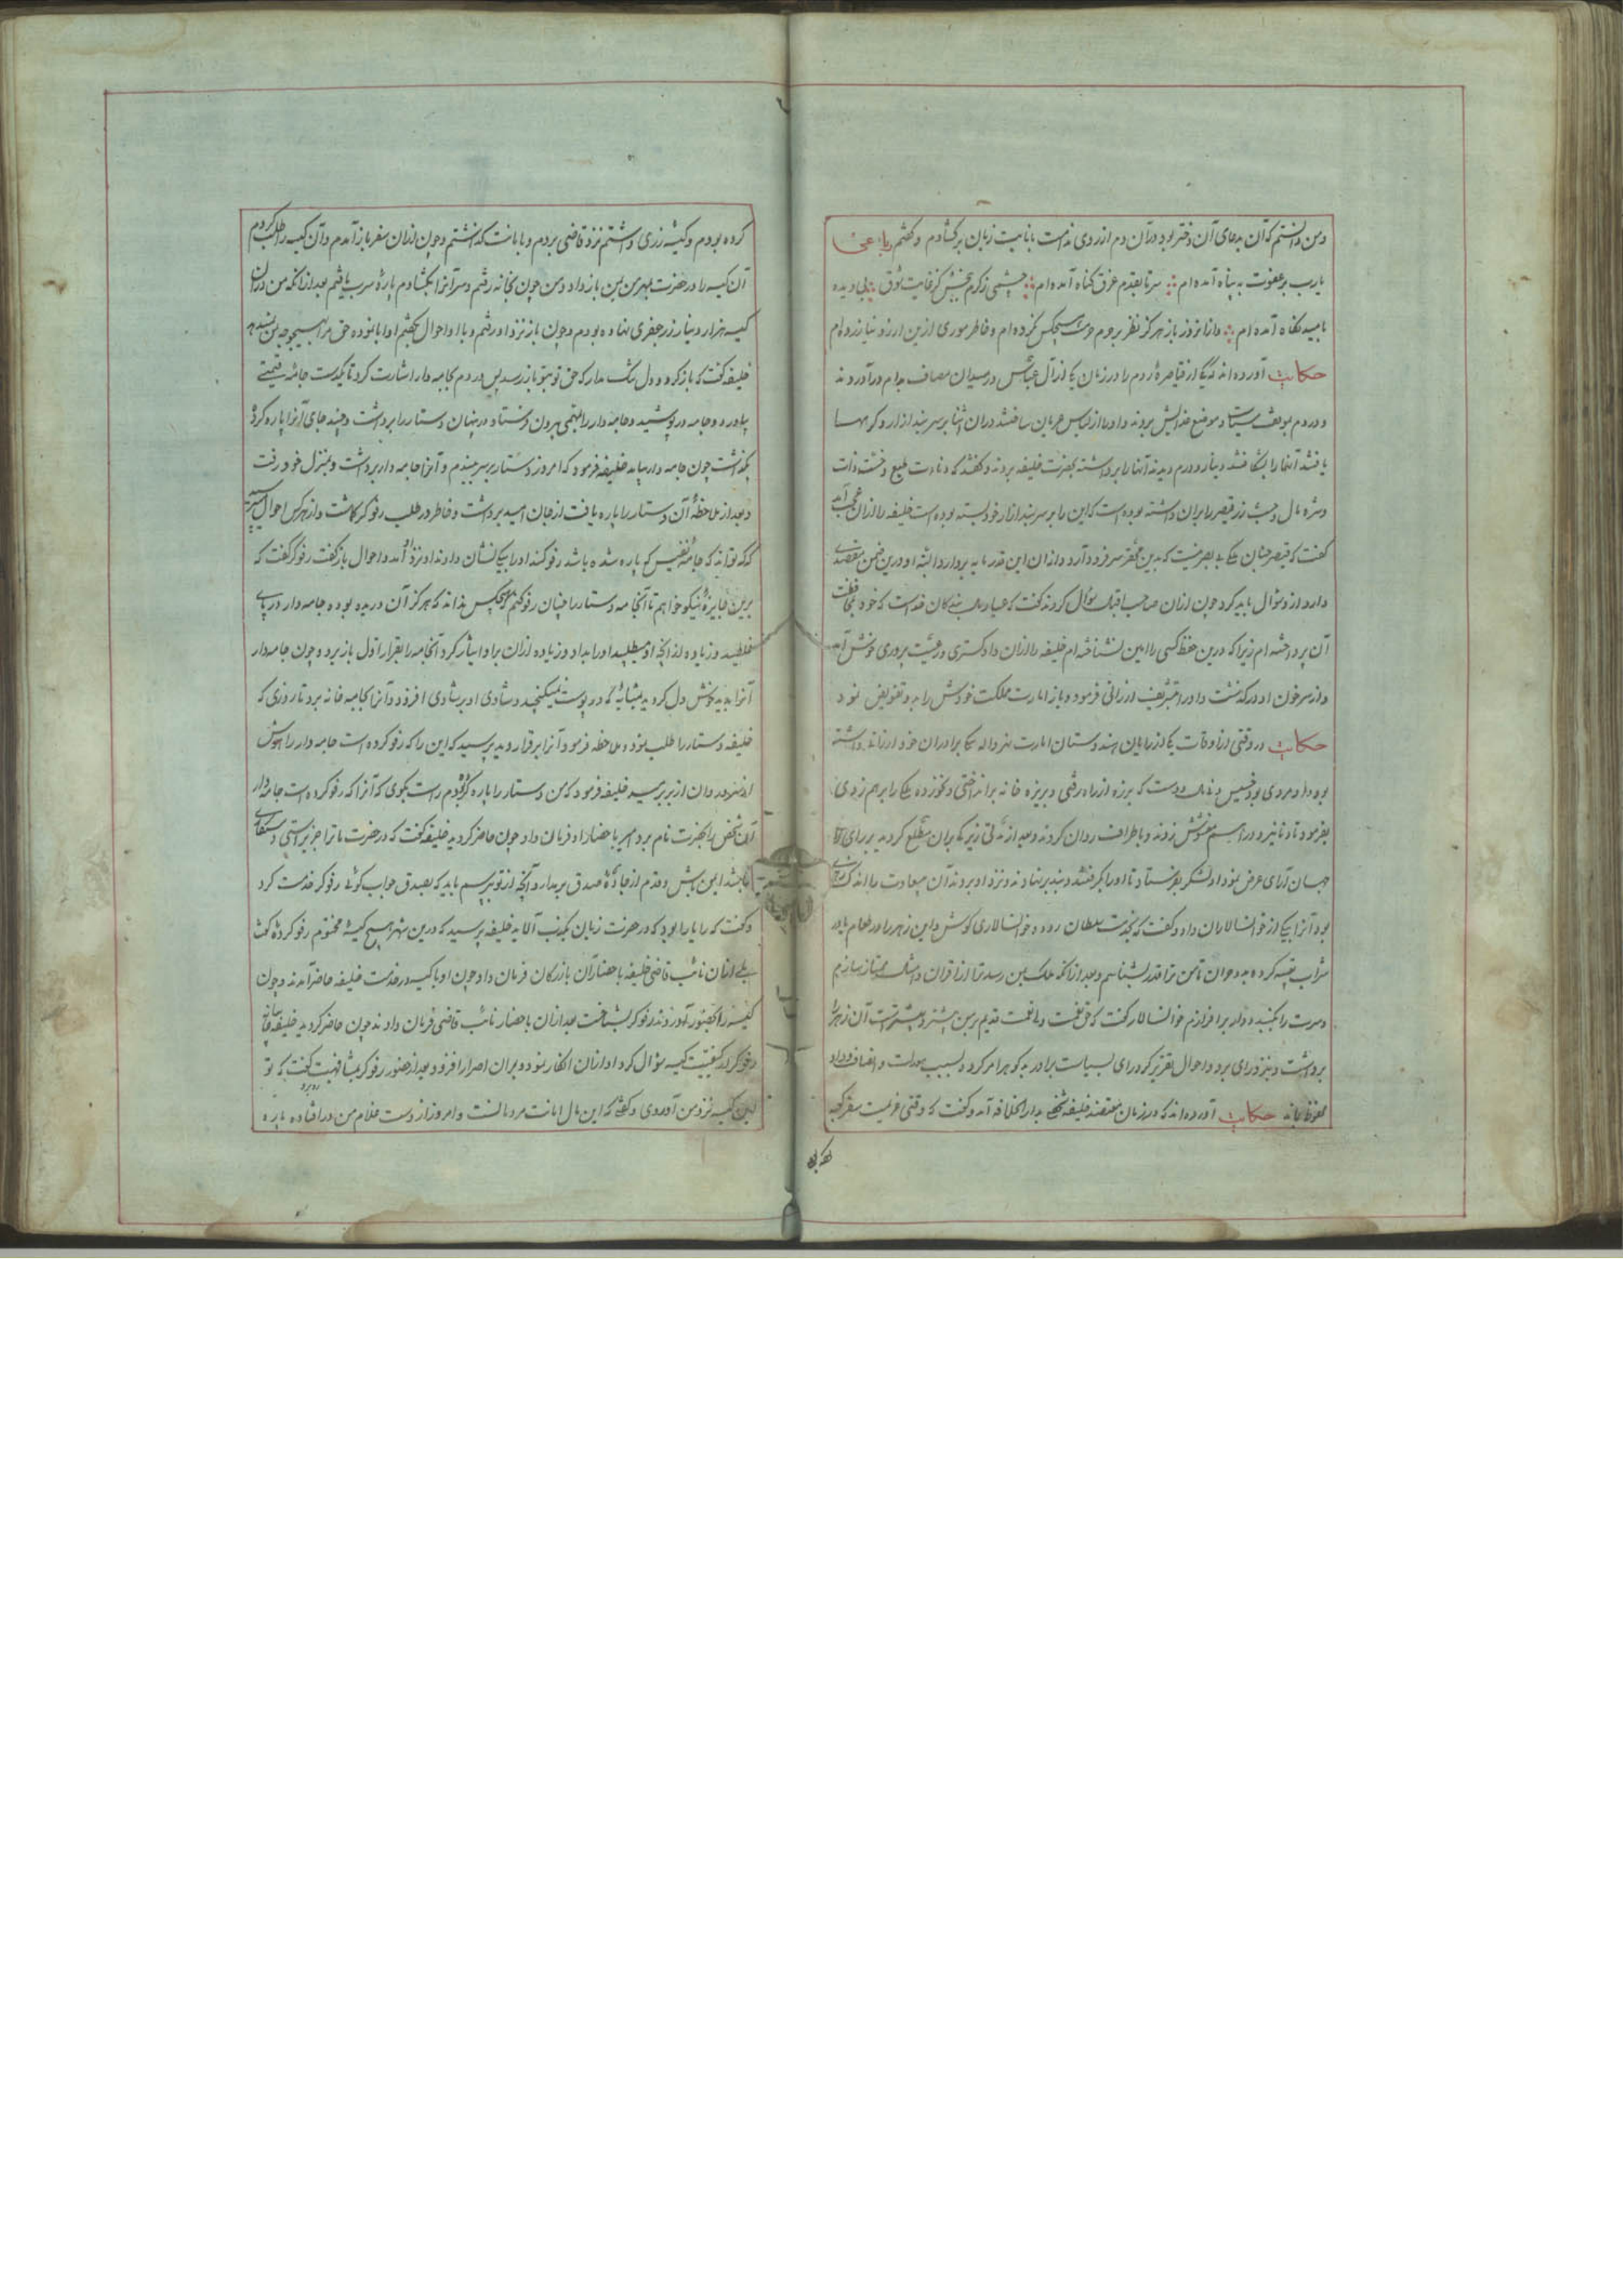 ومن دانستم که آن بدعای آن دختر بود در آن دم از روی ندامت بانابت زبان برکشادم و گفتم رباعی
یارب بر عفوت به پناه آمده ام سر تا بقدم غرق گناه آمده ام چشمی ز کرم بخش کز غایت شوق بی دیده
بامید نگاه آمده ام و از انروز باز هرگز نظر بر حرمت هیچکس نکرده ام و خاطر موری ازین ارز و نیازرده ام
حکایت آورده اند که یکی از قیاصرهٔ روم را در زمان یکی از آل عباس در میدان مصاف بدام در آوردند
و در دم بموقف سیاست و موضع فدایش بردند و او را از لباس عریان ساختند در آن اثنا بر سر بند ازار او گره
یافتند آنها را بشکافتند دینار و درم دیدند آنها را برداشته بحضرت خلیفه بردند و گفتند که دنائت طبع و خست ذات
وشره مال و حب زر قیصر را بر آن داشته بوده است که این را بر سر بند ازار خود بسته بوده است خلیفه را از آن عجب آمد
گفت که قیصر چنان کسی نیست که بدین محقر سر فرود آرد و از آن این قدر مایه بردارد البته او درین ضمن مقصدی
دارد ازو سؤال باید کرد چون از آن صاحب اقبال سؤال کردند گفت که عیار مال بندگان خداست که خود بمحافظت
آن پرداخته ام زیرا که درین حفظ کسی را امین نشناخته ام خلیفه را از آن دادگستری و رعیت پروری خوش آمد
و از سر خون او درگذشت و او را تشریف ارزانی فرمود و باز امارت مملکت خودش را بدو تفویض نمود
حکایت در وقتی از اوقات یکی از رایان هندوستان امارت نهرواله بیکی برادران خود ارزانی داشته
بود و او مردی بود خسیس و ... دوست که برزه از ماه رفتی و بریزه خانه برانداختی و نخورده یکی را برهم زدی
بفرمود تا دنانیر و دراهم مغشوش زدند و باطراف روان کردند و بعد از مدتی زیرکی بر آن مطلع گردیده بر رای
جهان آرای عرض نمود او لشکر بفرستاد تا او را بگرفتند و بند بر نهادند و نزد او بردند آن بسعادت را اندک
بود آنرا بیکی از خوانسالاران داد و گفت که بخدمت سلطان رو و در خوانسالاری کوش و این زهر را در طعام یا در
شراب تعبیه کرده بدو خوران تا من ترا قدر بشناسم و بعد از آنکه ملک بمن رسد ترا از اقران و امثال ممتاز سازم
وسرت را بگنبد دوار برافرازم خوانسالار گفت که حق نعمت ولی نعمت قدیم بر من بیشتر و پیشتر است آن زهر را
برداشت و بنزد رای برد و احوال تقریر کرد رای بسیاست برادر بد گوهر امر کرد و بسبب عدالت و انصاف و داد
محفوظ ماند حکایت آورده اند که در زمان معتضد خلیفه شخصی بدار الخلافه آمد و گفت که وقتی عزیمت سفر کعبه
کرده بودم و کیسهٔ زری داشتم نزد قاضی بردم و بامانت گذاشتم و چون از آن سفر باز آمدم و آن کیسه را طلب کردم
آن کیسه را در حضرت بمهر من بمن باز داد و من چون بخانه رفتم و سر آنرا بکشادم پارهٔ سرب یافتم بعد از آنکه من در آن
کیسه هزار دینار زر جعفری نهاده بودم و چون باز نزد او رفتم و با او احوال گفتم او ابا نموده حق مرا بهیچوجه بمن نمیدهد
خلیفه گفت که باز گرد و دل تنگ مدار که حق تو بتو باز رسد پس در دم بجامه دار اشارت کرد تا یکدست جامهٔ قیمتی
بیاورد و جامه در پوشید و جامه دار را بمهمی بیرون فرستاد و در پنهان دستار را برداشت و چند جای آنرا پاره کرد و
بگذاشت چون جامه دار بیامد خلیفه فرمود که امروز دستار بر سر نبندم و آنرا جامه دار برداشت و بمنزل خود رفت
و بعد از ملاحظهٔ آن دستار را پاره یافت از جان امید برداشت و خاطر در طلب رفوگر گماشت و از هر کس احوال میپرسید
که که تواند که جامهٔ نفیس که پاره شده باشد رفو کند او را بیکی نشان دادند او نزد او آمد و احوال باز گفت رفوگر گفت که
برین جایزهٔ نیکو خواهم تا آنجامه دستار را چنان رفو کنم که هیچکس نداند که هرگز آن دریده بوده جامه دار در پای
غلطید و زیاده از آنچه او میطلبید او را بداد و زیاده از آن برو ایثار کرد آنجامه را بقرار اول باز برد و چون جامه دار
آنرا بدید خوش دل گردید بمثابهٔ که در پوست نمیگنجید و شادی او بر شادی افزود و آنرا بجامه خانه برد تا روزی که
خلیفه دستار را طلب نمود و ملاحظه فرمود آنرا برقرار دید پرسید که این را که رفو کرده است جامه دار را هوش
از سر و روان از بر برمید خلیفه فرمود که من دستار را پاره کرده بودم راست بگوی که آنرا که رفو کرده است جامه دار
آن شخص را بحضرت نام برد امیر باحضار او فرمان داد چون حاضر گردید خلیفه گفت که در حضرت ما ترا جز براستی رستگاری
نباشد ایمن باش و قدم از جادهٔ صدق بر مدار و آنچه از تو پرسم باید که بصدق جواب گوئی رفوگر خدمت کرد
و گفت که را یارا بود که در حضرت زبان بکذب آلاید خلیفه پرسید که درین شهر هیچ کیسهٔ مختوم رفو کردهٔ گفت
بلی از آن نائب قاضی خلیفه باحضار آن بازرگان فرمان داد چون او با کیسه در خدمت خلیفه حاضر آمدند و چون
کیسه را بحضور آوردند رفوگر بشناخت بعد از آن باحضار نائب قاضی فرمان دادند چون حاضر گردید خلیفه
از کیفیت کیسه سؤال کرد او از آن انکار نمود و بر آن اصرار افزود بعد از حضور رفوگر بمشافهت گفت که تو
این کیسه نزد من آوردی و گفتی که این مال امانت مردمانست و امروز از دست غلام من در افتاده پاره